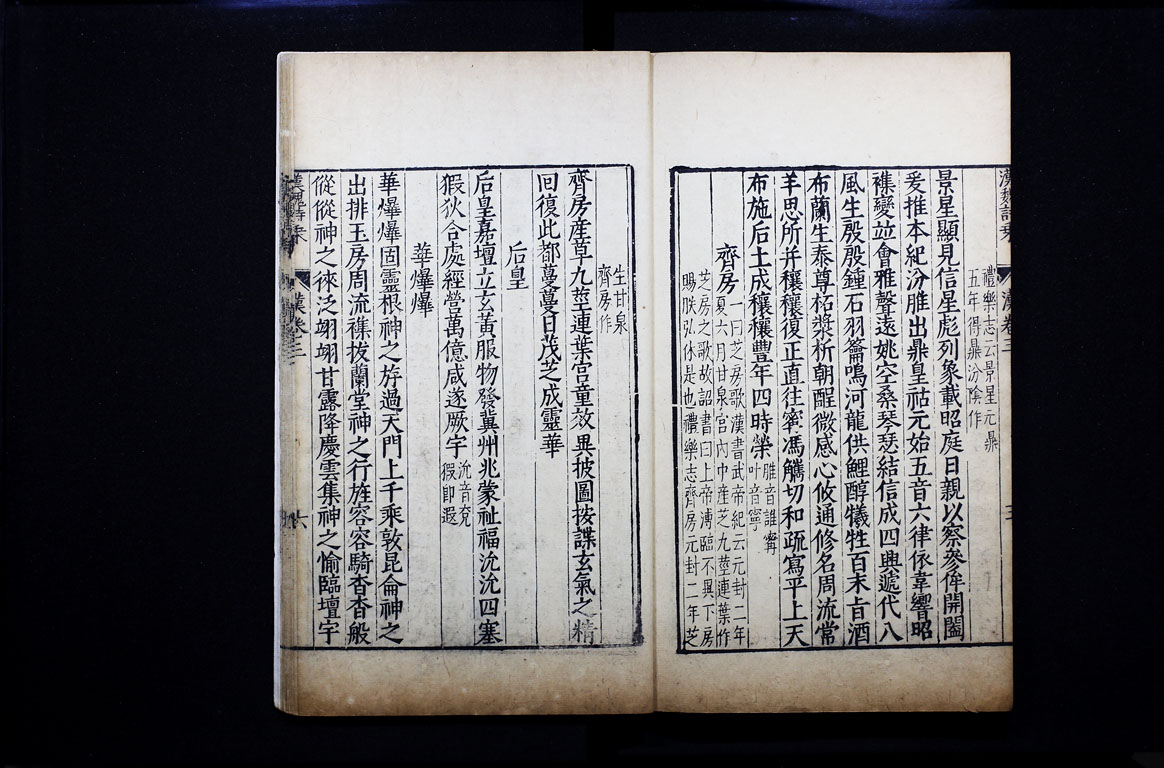 漢魏詩乘
漢卷三
禮樂志云景星元鼎
五年得鼎汾陰作
景星顯見信星彪列象載昭庭日親以察參侔開闔
爰推本紀汾脽出鼎皇祜元始五音六律依韋響昭
襍變並會雅聲遠姚空桑琴瑟結信成四興遞代八
風生殷殷鍾石羽籥鳴河龍供鯉醇犧牲百末旨酒
布蘭生泰尊柘漿析朝酲微感心攸通修名周流常
羊思所并穰穰復正直往甯馮蠵切和疏寫平上天
布施后土成穰穰豐年四時榮
脽音誰甯
叶音寧
齊房
一曰芝房歌漢書武帝紀云元封二年
夏六月甘泉宮內中產芝九莖連葉作
芝房之歌故詔書曰上帝溥臨不異下房
賜朕弘休是也禮樂志齊房元封二年芝
生甘泉
齊房作
齊房產草九莖連葉宮童效異披圖按諜玄氣之精
回復此都蔓蔓日茂芝成靈華
后皇
后皇嘉壇立玄黃服物發冀州兆蒙祉福沇沇四塞
猳狄合處經營萬億咸遂厥宇
沇音兗
猳即遐
華爗爗
華爗爗固靈根神之斿過天門上千乘敦昆侖神之
出排玉房周流襍拔蘭堂神之行旌容容騎沓沓般
從從神之徠泛翊翊甘露降慶雲集神之愉臨壇宇
漢魏詩乘
漢卷三
六